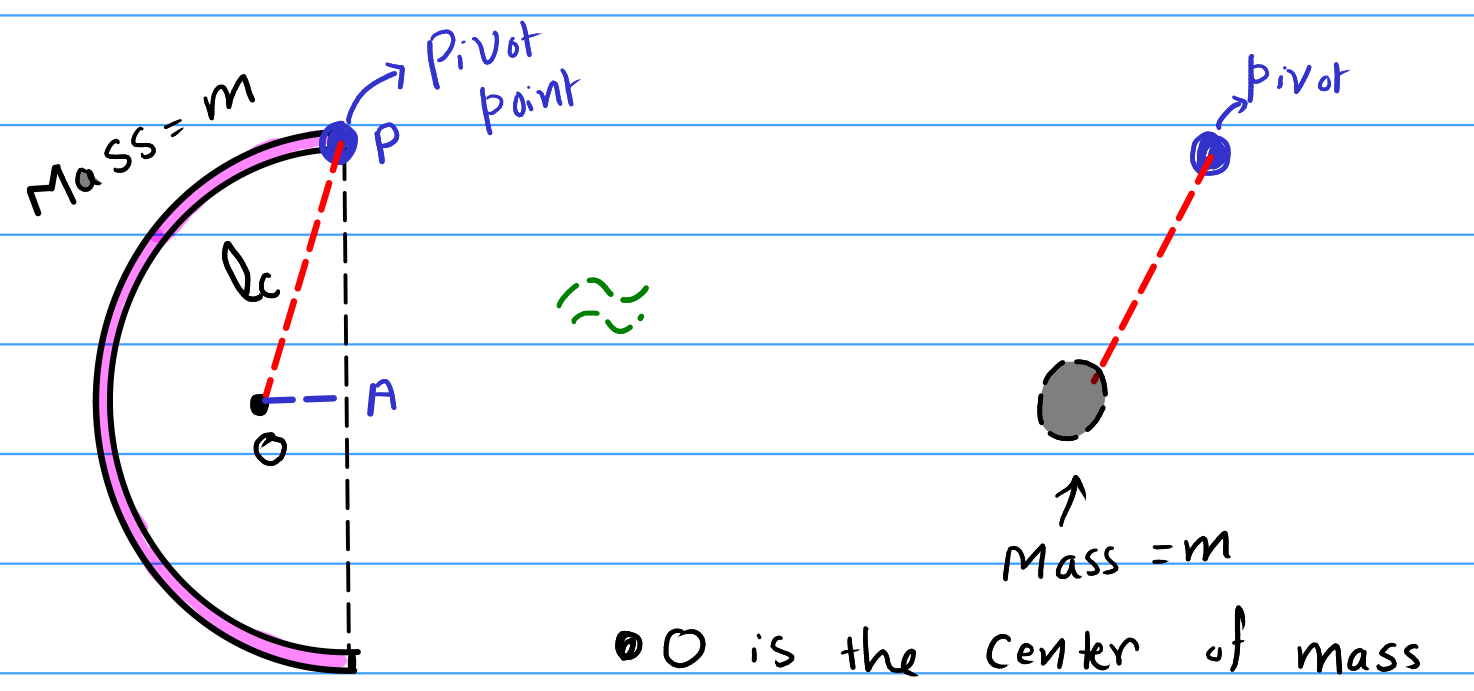 Mass = m
Pivot
point
P
lc
A
O
≈
pivot
Mass = m
• O is the center of mass